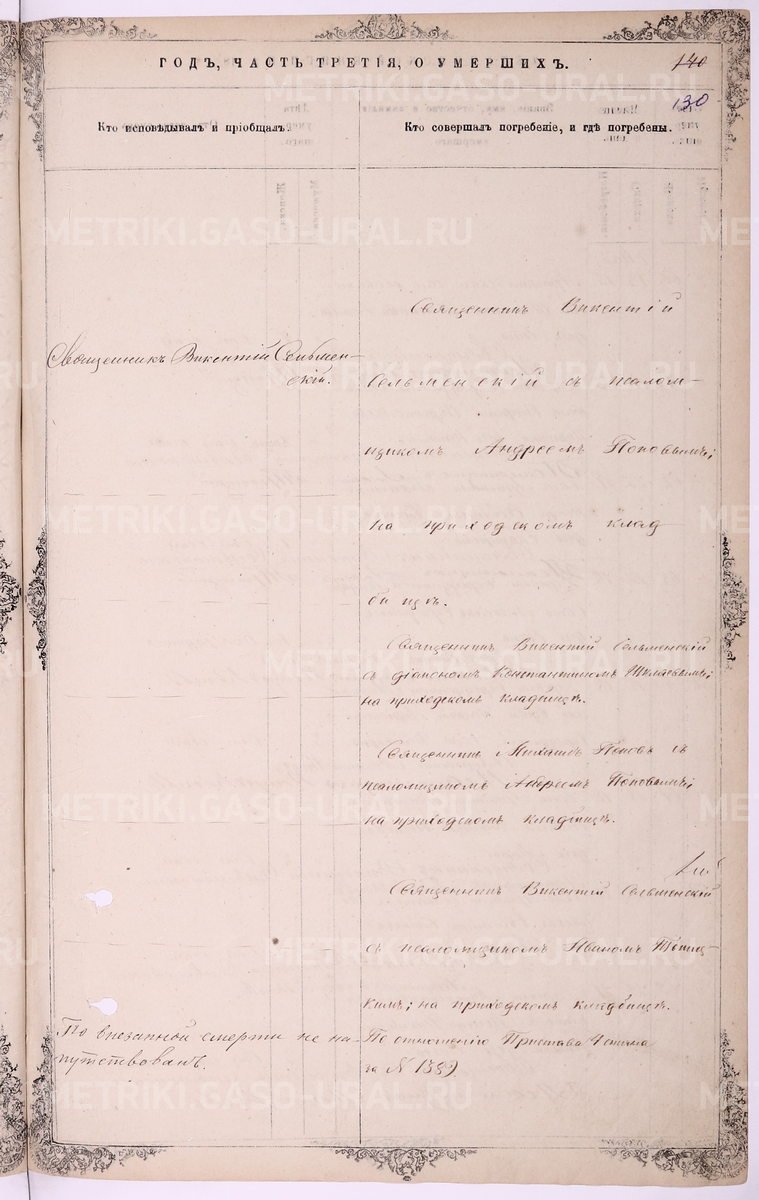 ГОДЪ, ЧАСТЬ ТРЕТІЯ, О УМЕРШИХЪ.
140
130
Кто исповѣдывалъ и пріобщалъ.
Кто совершалъ погребеніе, и гдѣ погребены.
Священникъ Викентій
Священникъ Викентій Сельмен-
скій.
Сельменскій съ псалом-
щикомъ Андреемъ Поповымъ;
на приходскомъ клад
бищѣ.
Священникъ Викентій Сельменскій
съ діакономъ Константиномъ
на приходскомъ кладбищѣ.
Священникъ Михаилъ Поповъ съ
псаломщикомъ Андреемъ Поповымъ;
на приходскомъ кладбищѣ.
Священникъ Викентій Сельменскій
съ псаломщикомъ Иваномъ
кимъ; на приходскомъ кладбищѣ.
По внезапной смерти не на-
путствованъ.
По отношенію Пристава
за № 1389
METRIKI.GASO-URAL.RU